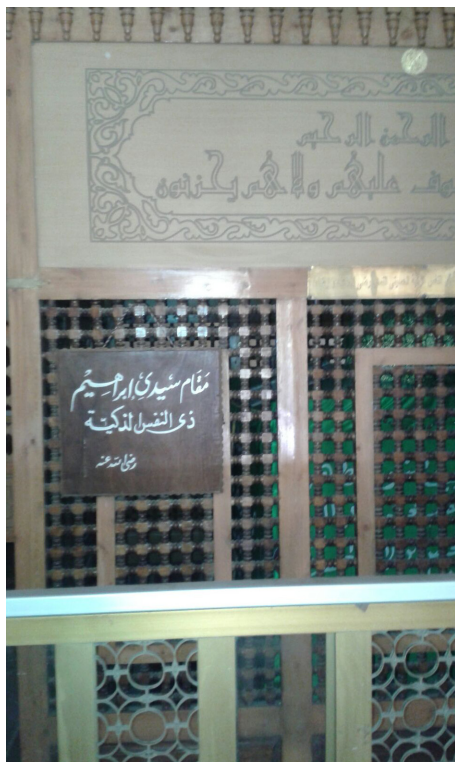 الرحمن الرحيم
خوف عليهم ولا هم يحزنون
مقام سيدي إبراهيم
ذى النفس الذكية
رضى الله عنه